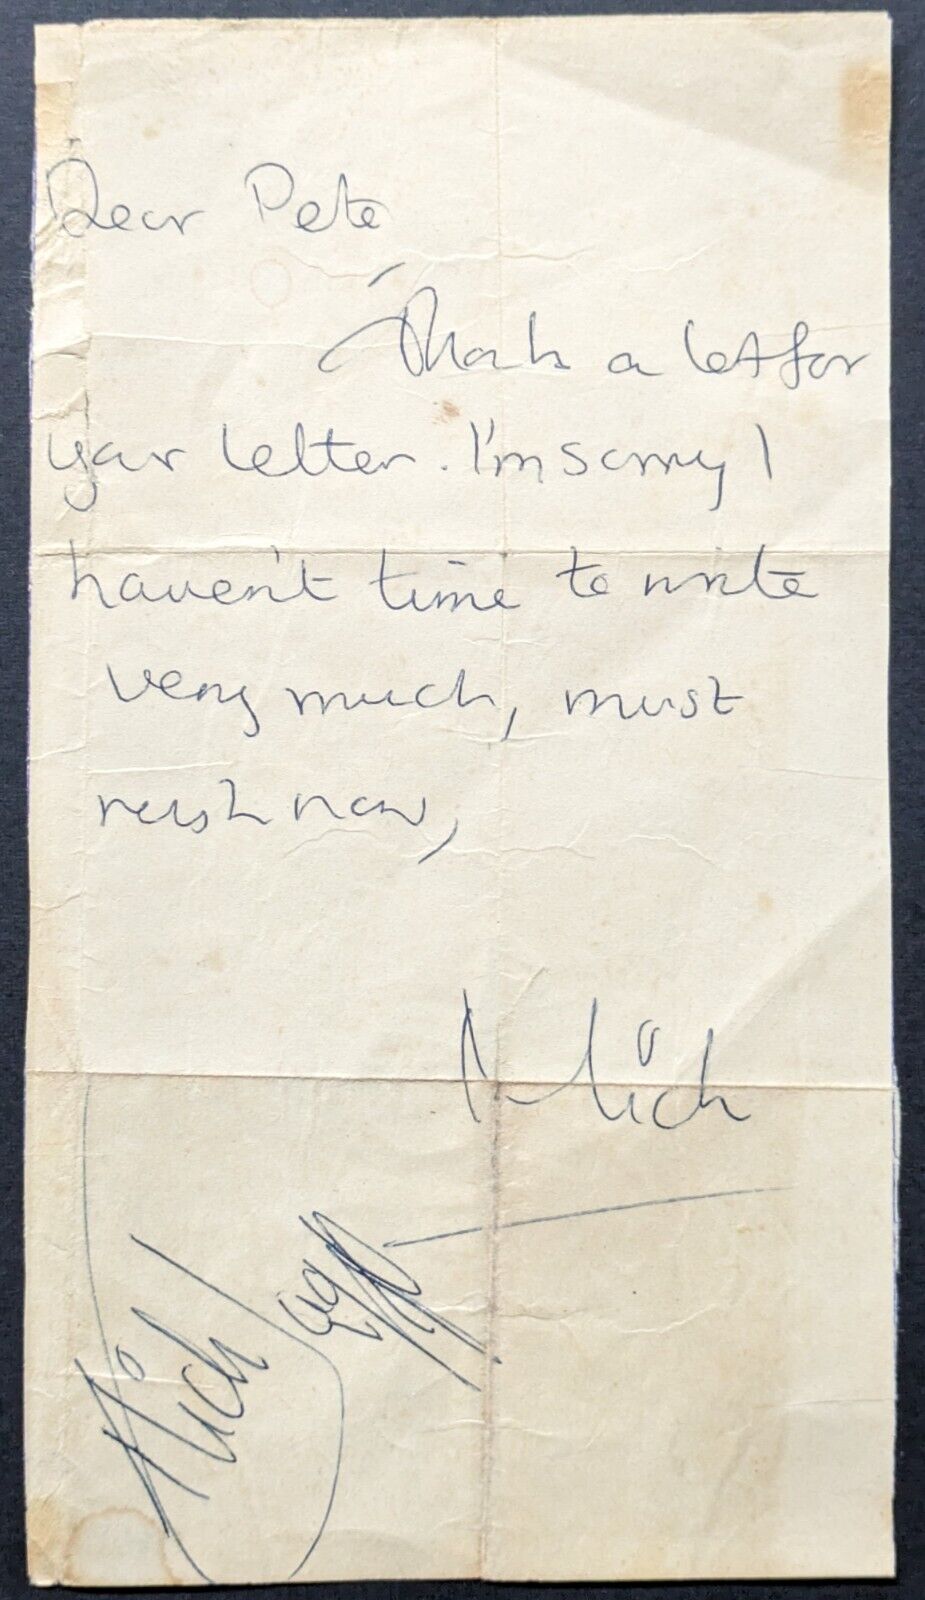 Dear Pete
Thanks a lot for
your letter. I'm sorry I
haven't time to write
very much, must
rush now,
Mick
Mick Jagger